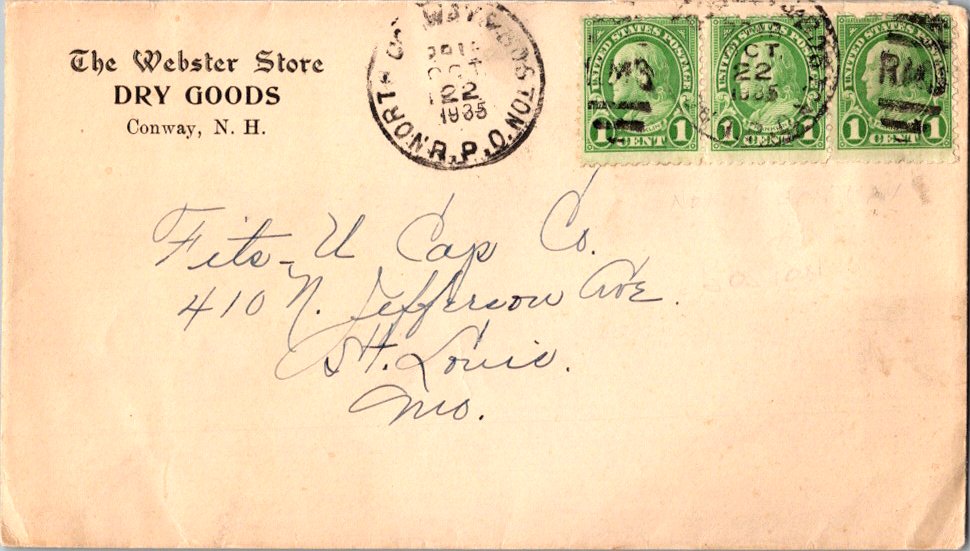 The Webster Store
DRY GOODS
Conway, N. H.
NORTH CONWAY & BOSTON
OCT
22
1935
R.P.O.
UNITED STATES POSTAGE
1 CENT 1
UNITED STATES POSTAGE
OCT.
22
1935
1 CENT 1
UNITED STATES POSTAGE
1 CENT 1
Fits-U Cap Co.
410 N. Jefferson Ave.
St. Louis.
Mo.